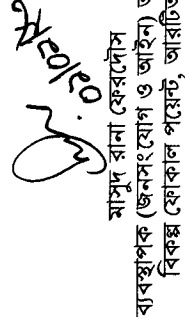 মাসুদ রানা ফেরদৌস
ব্যবস্থাপক (জনসংযোগ ও আইন)
বিকল্প ফোকাল পয়েন্ট, আরটিআ